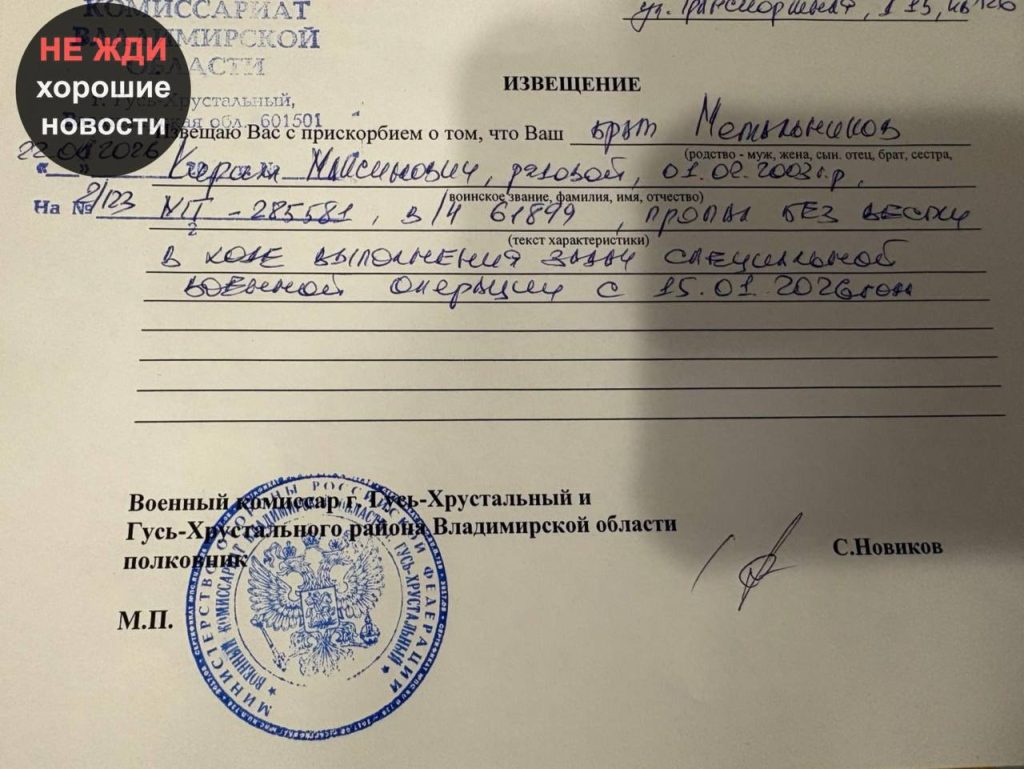 КОМИССАРИАТ
ВЛАДИМИРСКОЙ
ОБЛАСТИ
г. Гусь-Хрустальный,
обл., 601501
НЕ ЖДИ
хорошие
новости
22.01.2026
На № 2/123
ИЗВЕЩЕНИЕ
Извещаю Вас с прискорбием о том, что Ваш брат Метальников
(родство - муж, жена, сын. отец, брат, сестра,
Кирилл Максимович, рядовой, 01.02.2003г.р,
воинское звание, фамилия, имя, отчество)
-285581, в/ч 61899, пропал без вести
(текст характеристики)
в ходе выполнения задач специальной
военной операции с 15.01.2026
Военный комиссар г. Гусь-Хрустальный и
Гусь-Хрустального района Владимирской области
полковник
С.Новиков
М.П.
МИНИСТЕРСТВО ОБОРОНЫ РОССИЙСКОЙ ФЕДЕРАЦИИ
ВОЕННЫЙ КОМИССАРИАТ ВЛАДИМИРСКОЙ ОБЛАСТИ ГУСЬ-ХРУСТАЛЬНЫЙ